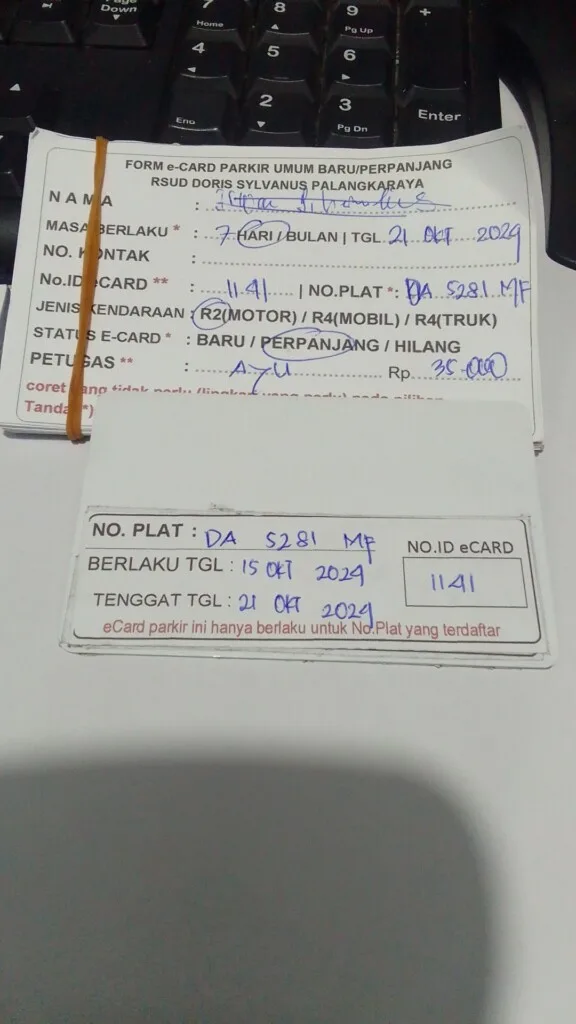 Page
Down
7
Home
8
9
Pg Up
+
4
5
6
Eno
2
3
Pg Dn
Enter
FORM e-CARD PARKIR UMUM BARU/PERPANJANG
RSUD DORIS SYLVANUS PALANGKARAYA
NAMA :
MASA BERLAKU * : 7 HARI / BULAN | TGL 21 OKT 2024
NO. KONTAK :
No.ID eCARD ** : 1141 | NO.PLAT *: DA 5281 MF
JENIS KENDARAAN : R2(MOTOR) / R4(MOBIL) / R4(TRUK)
STATUS E-CARD * : BARU / PERPANJANG / HILANG
PETUGAS ** : AYU Rp 35.000
coret yang tidak perlu (lingkari yang perlu) pada pilihan
Tanda *)
NO. PLAT : DA 5281 MF
BERLAKU TGL : 15 OKT 2024
TENGGAT TGL : 21 OKT 2024
NO.ID eCARD
1141
eCard parkir ini hanya berlaku untuk No.Plat yang terdaftar